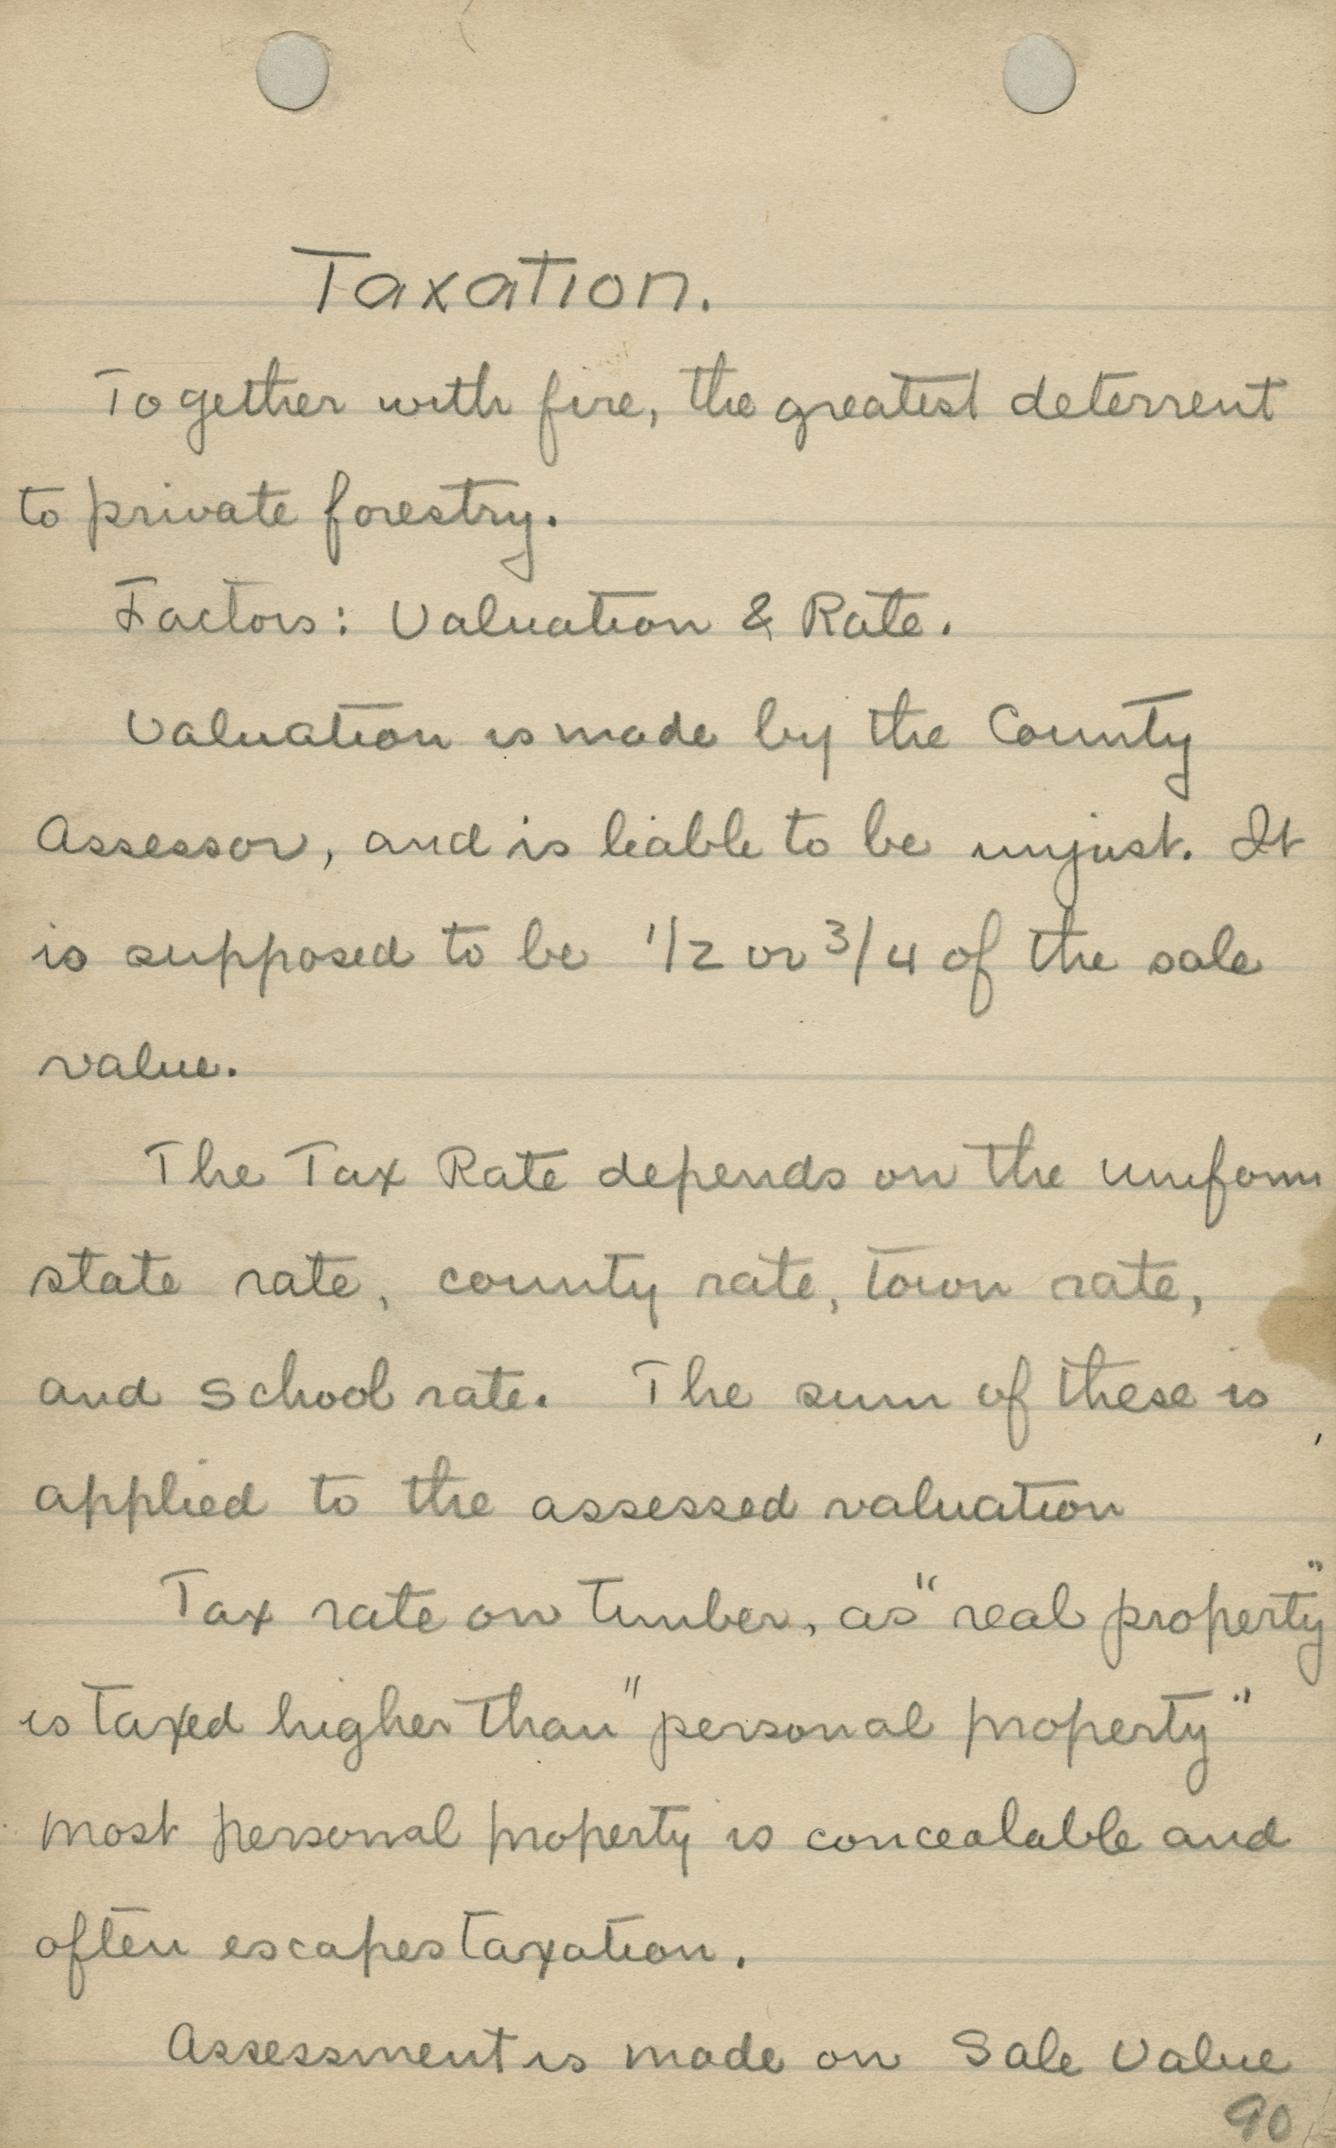 Taxation.
Together with fire, the greatest deterrent
to private forestry.
Factors: Valuation & Rate.
Valuation is made by the County
Assessor, and is liable to be unjust. It
is supposed to be 1/2 or 3/4 of the sale
value.
The Tax Rate depends on the uniform
state rate, county rate, town rate,
and school rate. The sum of these is
applied to the assessed valuation
Tax rate on Timber, as "real property"
is taxed higher than "personal property"
most personal property is concealable and
often escapes taxation.
Assessment is made on Sale Value
90